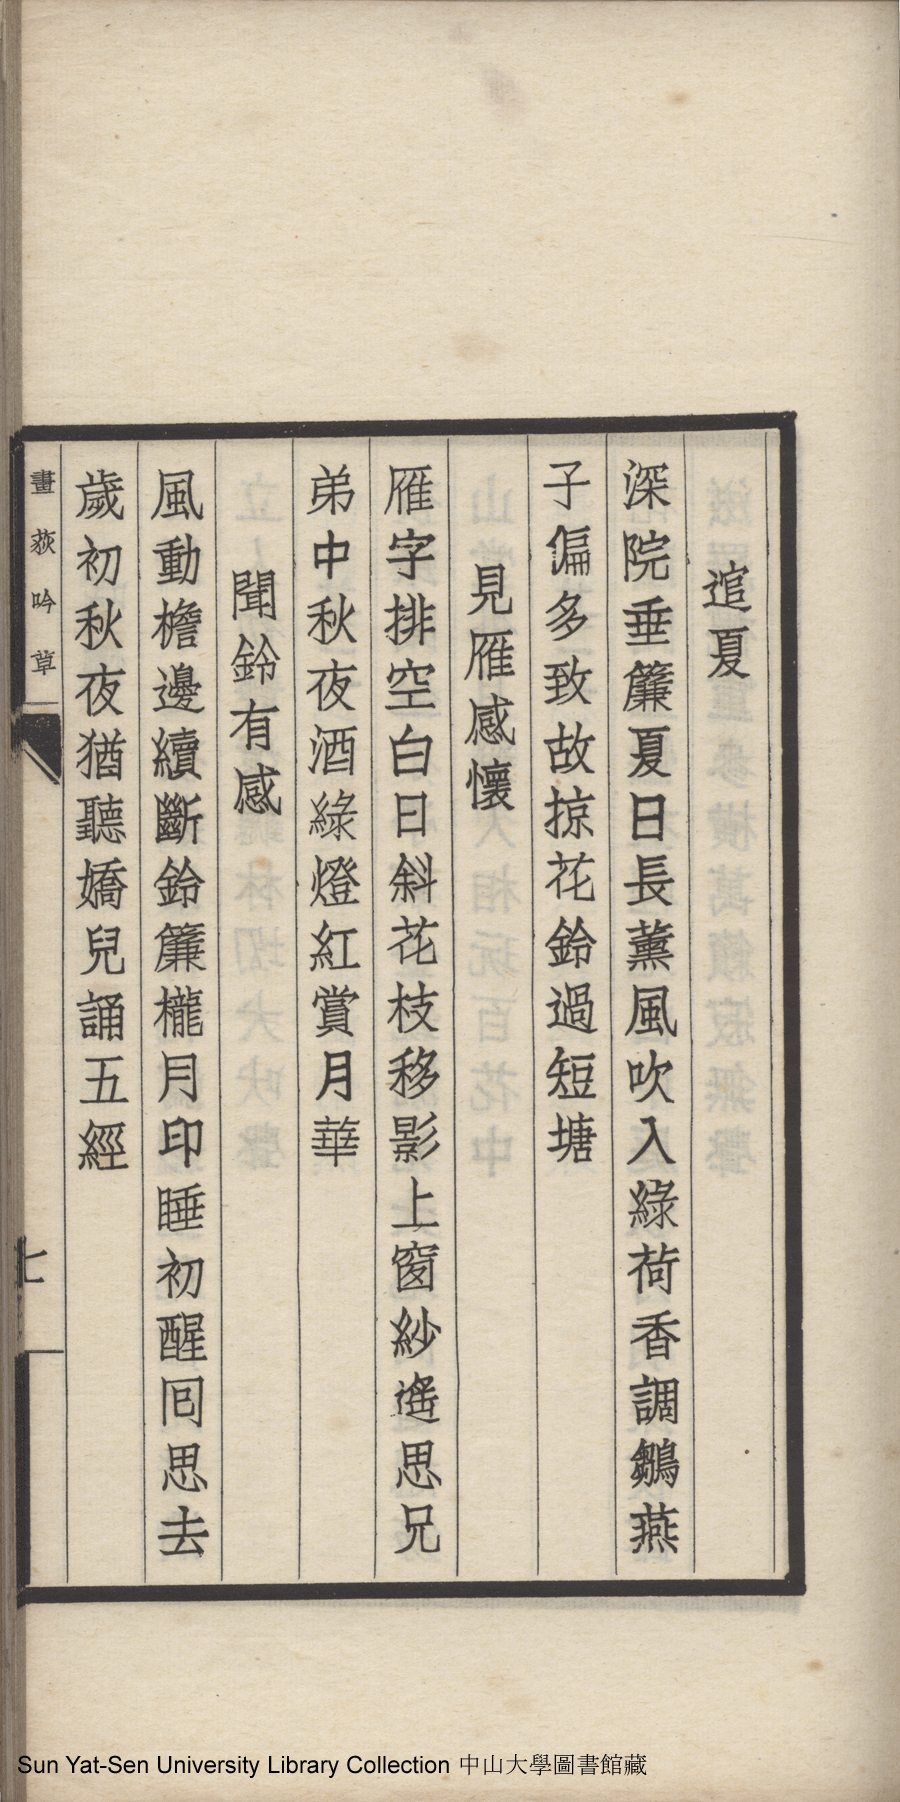 追夏
深院垂簾夏日長薰風吹入綠荷香調鶵燕
子偏多致故掠花鈴過短塘
見雁感懷
雁字排空白日斜花枝移影上窗紗遙思兄
弟中秋夜酒綠燈紅賞月華
聞鈴有感
風動檐邊續斷鈴簾櫳月印睡初醒囘思去
歲初秋夜猶聽嬌兒誦五經
畫荻吟草
七
Sun Yat-Sen University Library Collection 中山大學圖書館藏